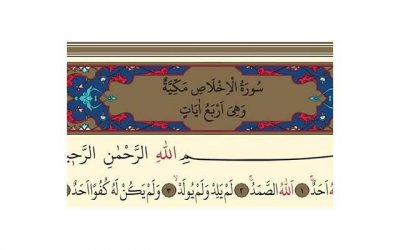 سُورَةُ الْاِخْلَاصِ مَكِّيَّةٌ
وَهِيَ اَرْبَعُ اٰيَاتٍ
ـــمِ اللّٰهِ الرَّحْمٰنِ الرَّحٖيـ
اَحَدٌۚ ﴿١﴾ اَللّٰهُ الصَّمَدُۚ ﴿٢﴾ لَمْ يَلِدْ وَلَمْ يُولَدْۙ ﴿٣﴾ وَلَمْ يَكُنْ لَهُ كُفُوًا اَحَدٌ